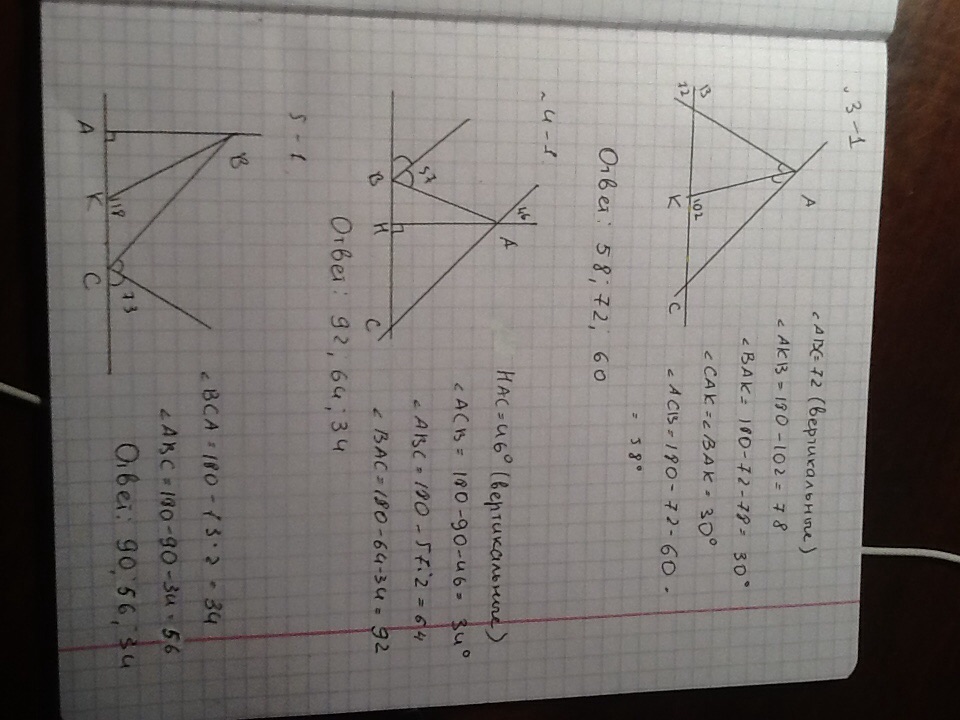 3-1
A
B
72
K
102
C
∠ABC=72 (вертикальные)
∠AKB=180-102=78
∠BAK=180-72-78=30°
∠CAK=∠BAK=30°
∠ACB=180-72-60=
=58°
Ответ: 58; 72; 60
4-1
57
B
H
46
A
C
HAC=46° (вертикальные)
∠ACB=180-90-46=34°
∠ABC=180-57·2=64
∠BAC=180-64-34=92
Ответ: 92; 64; 34
5-1
B
A
K
118
C
73
∠BCA=180-73·2=34
∠ABC=180-90-34=56
Ответ: 90; 56; 34